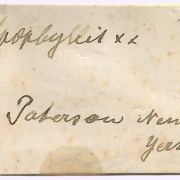 Apophyllit xx
Paterson New
Yers